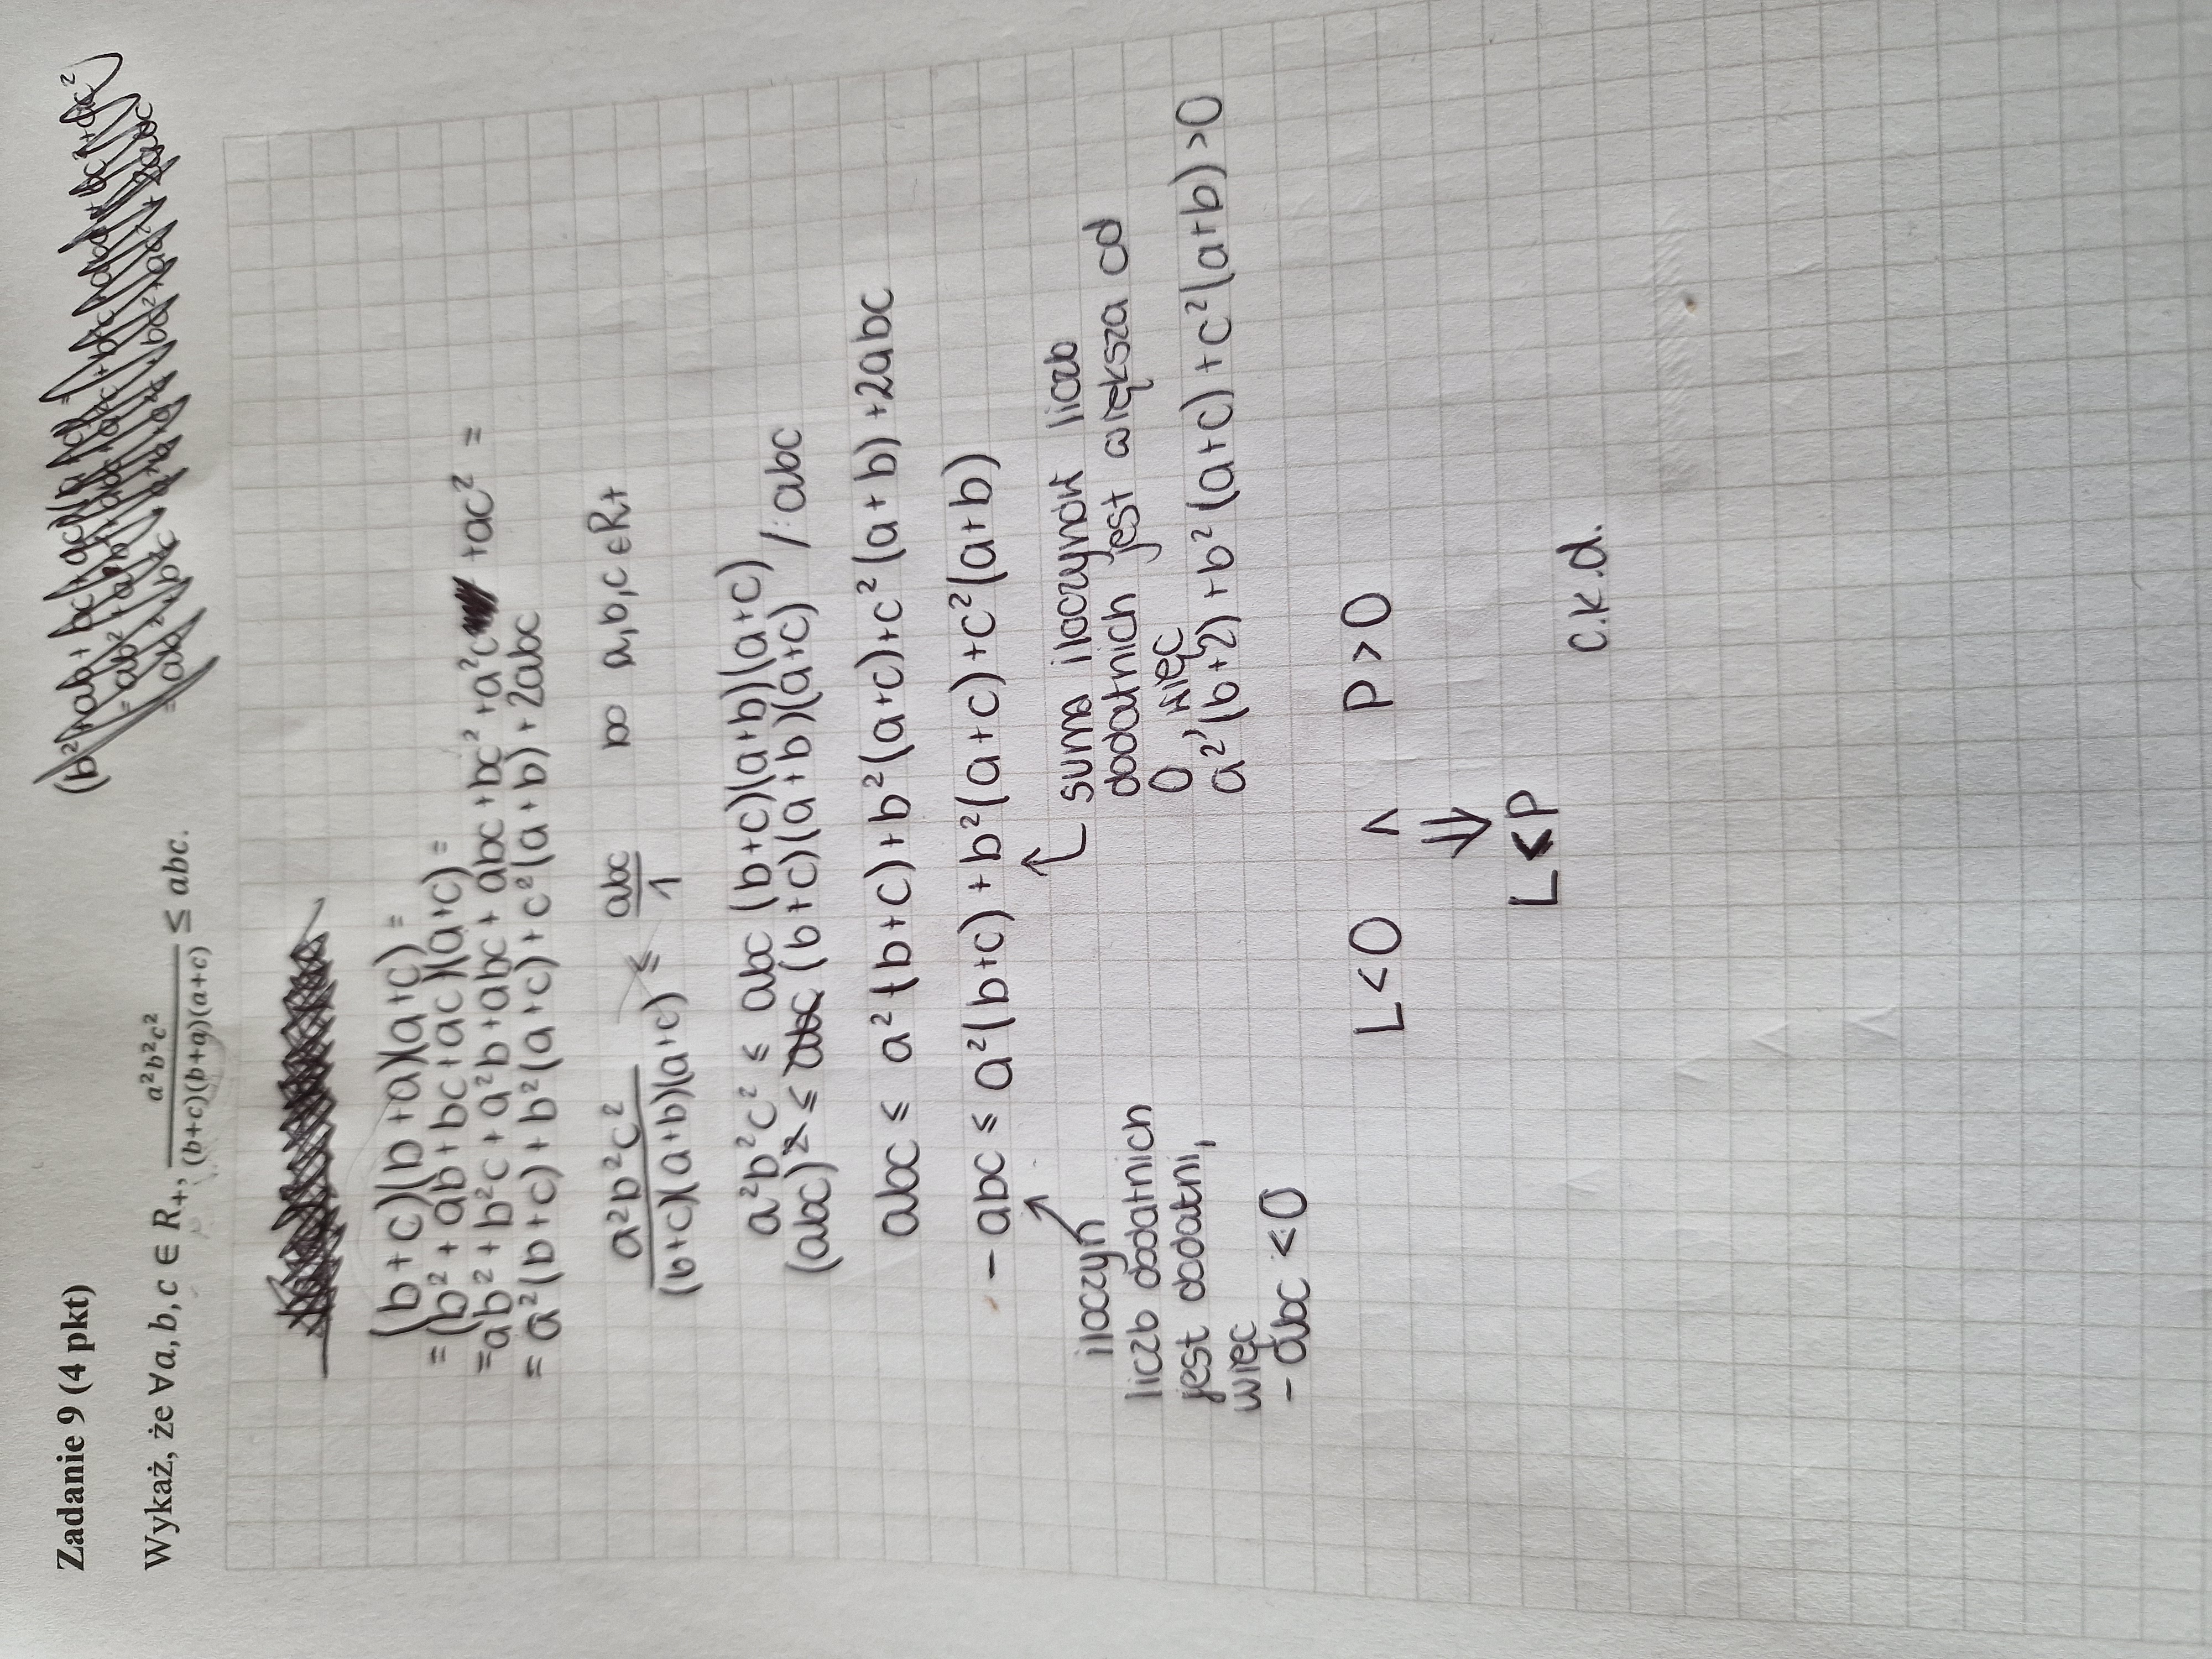 Zadanie 9 (4 pkt)
Wykaż, że ∀a, b, c ∈ R₊, a²b²c² / (b+c)(b+a)(a+c) ≤ abc.
(b+c)(b+a)(a+c) =
= (b² + ab + bc + ac)(a+c) =
= ab² + b²c + a²b + abc + abc + bc² + a²c + ac² =
= a²(b+c) + b²(a+c) + c²(a+b) + 2abc
a²b²c² / (b+c)(a+b)(a+c) ≤ abc / 1 bo a,b,c ∈ R+
a²b²c² ≤ abc (b+c)(a+b)(a+c)
(abc)² ≤ abc (b+c)(a+b)(a+c) / : abc
abc ≤ a²(b+c) + b²(a+c) + c²(a+b) + 2abc
- abc ≤ a²(b+c) + b²(a+c) + c²(a+b)
iloczyn
liczb dodatnich
jest dodatni,
więc
- abc < 0
suma iloczynów liczb
dodatnich jest większa od
0, więc
a²(b+2) + b²(a+c) + c²(a+b) > 0
L < 0 ∧ P > 0
⇓
L < P
c.k.d.